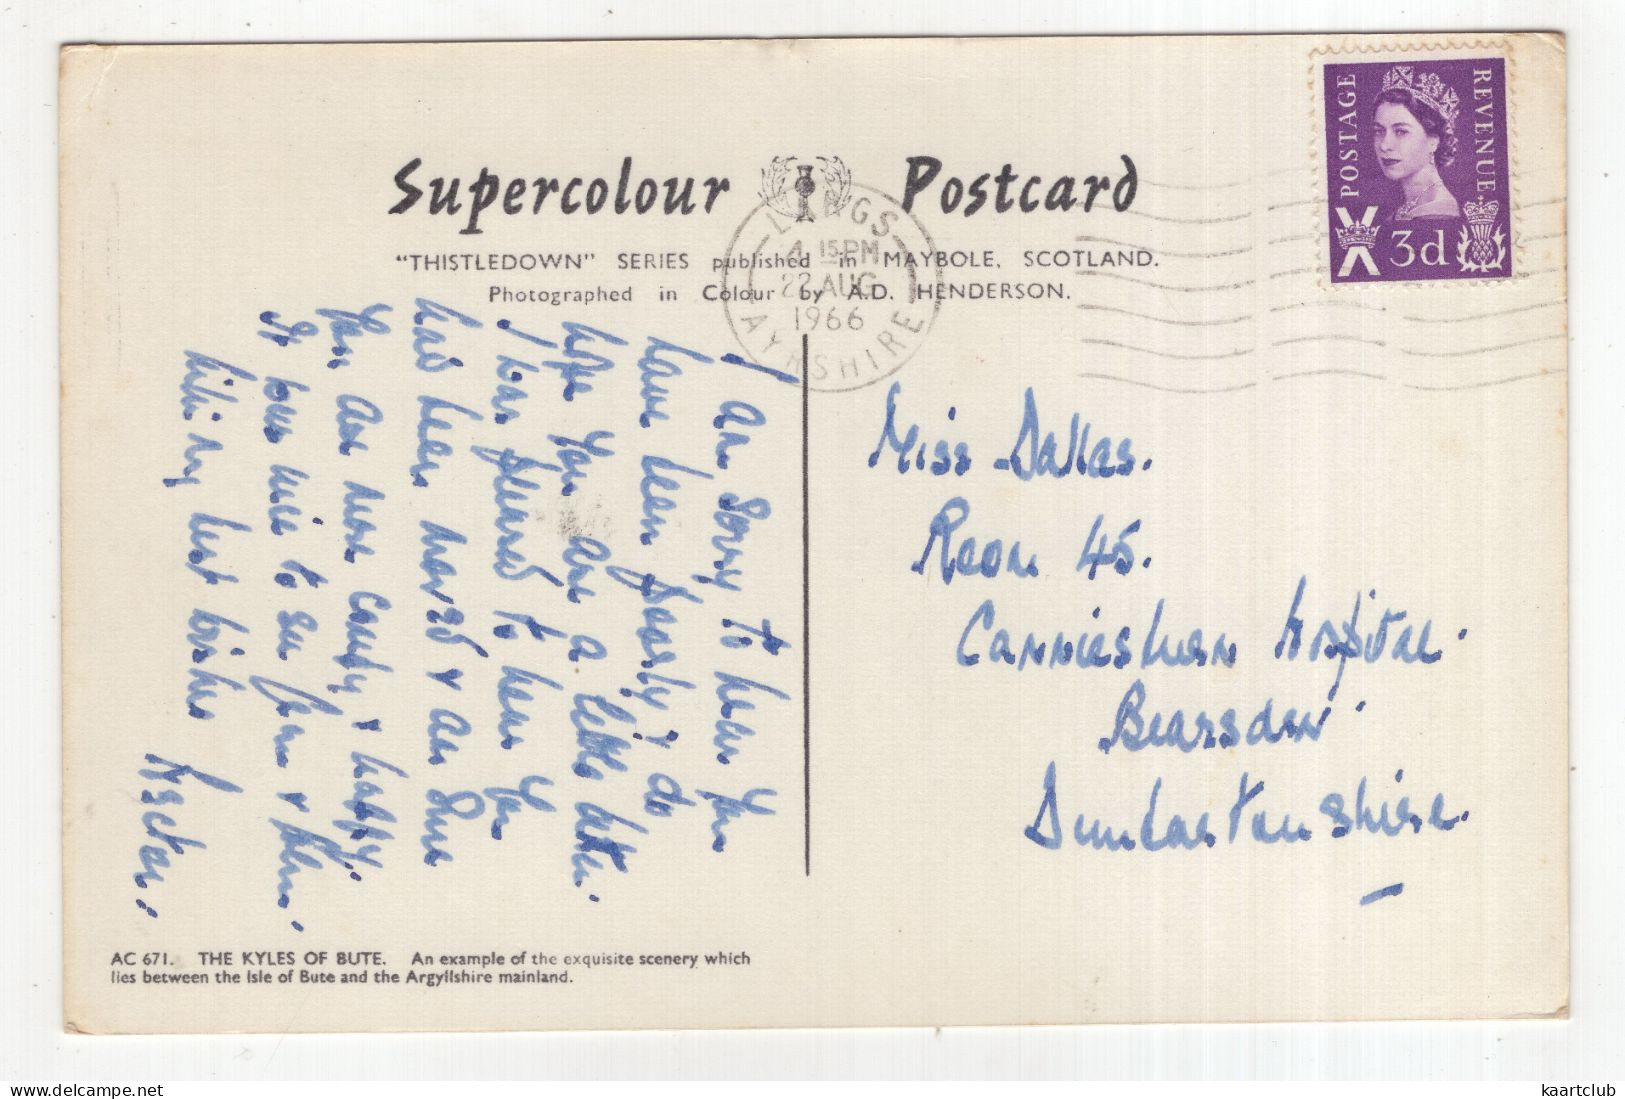 Supercolour Postcard
"THISTLEDOWN" SERIES published in MAYBOLE, SCOTLAND.
Photographed in Colour by A.D. HENDERSON.
POSTAGE REVENUE
3d
LARGS
4 15 PM
22 AUG
1966
AYRSHIRE
I am sorry to hear you
have been poorly & do
hope you are a little better.
I was pleased to hear you
had been moved & am sure
you are more comfy & happy.
It was nice to see Jean &
With my best wishes
Miss Dallas.
Room 45.
Canniesburn Hospital.
Bearsden.
Dunbartonshire.
AC 671. THE KYLES OF BUTE. An example of the exquisite scenery which
lies between the Isle of Bute and the Argyllshire mainland.
kaartclub